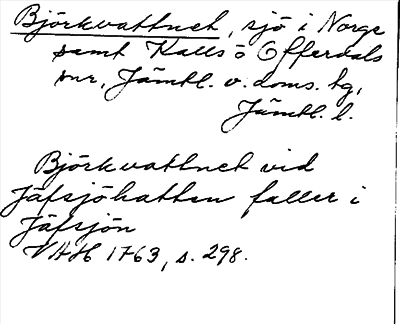 Björkvattnet, sjö i Norge
samt Kalls o Offerdals
snr, Jämtl. v. doms. hg,
Jämtl. l.
Björkvattnet vid
Jäfsjöhatten faller i
Jäfsjön
VAH 1763, s. 298.